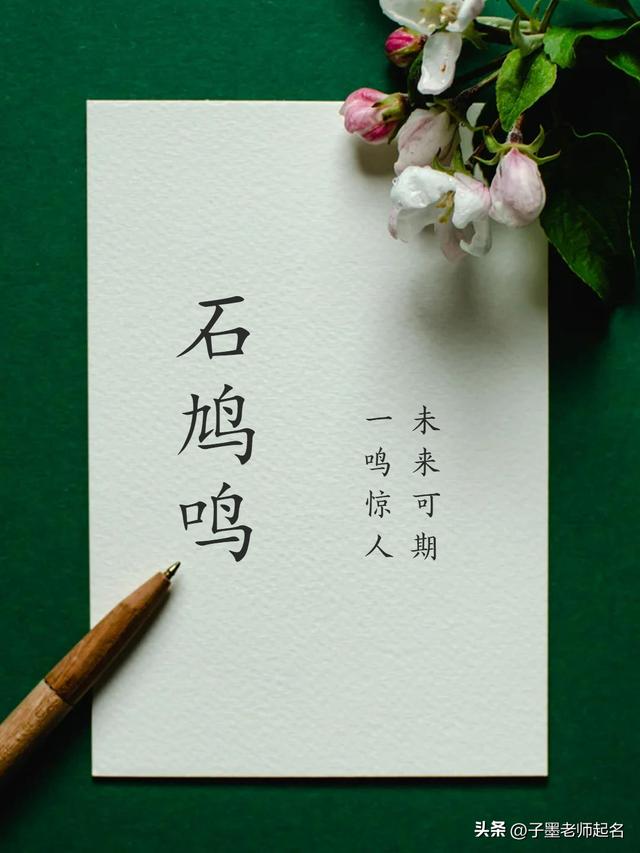 石鸠鸣
未来可期
一鸣惊人
头条 @子墨老师起名